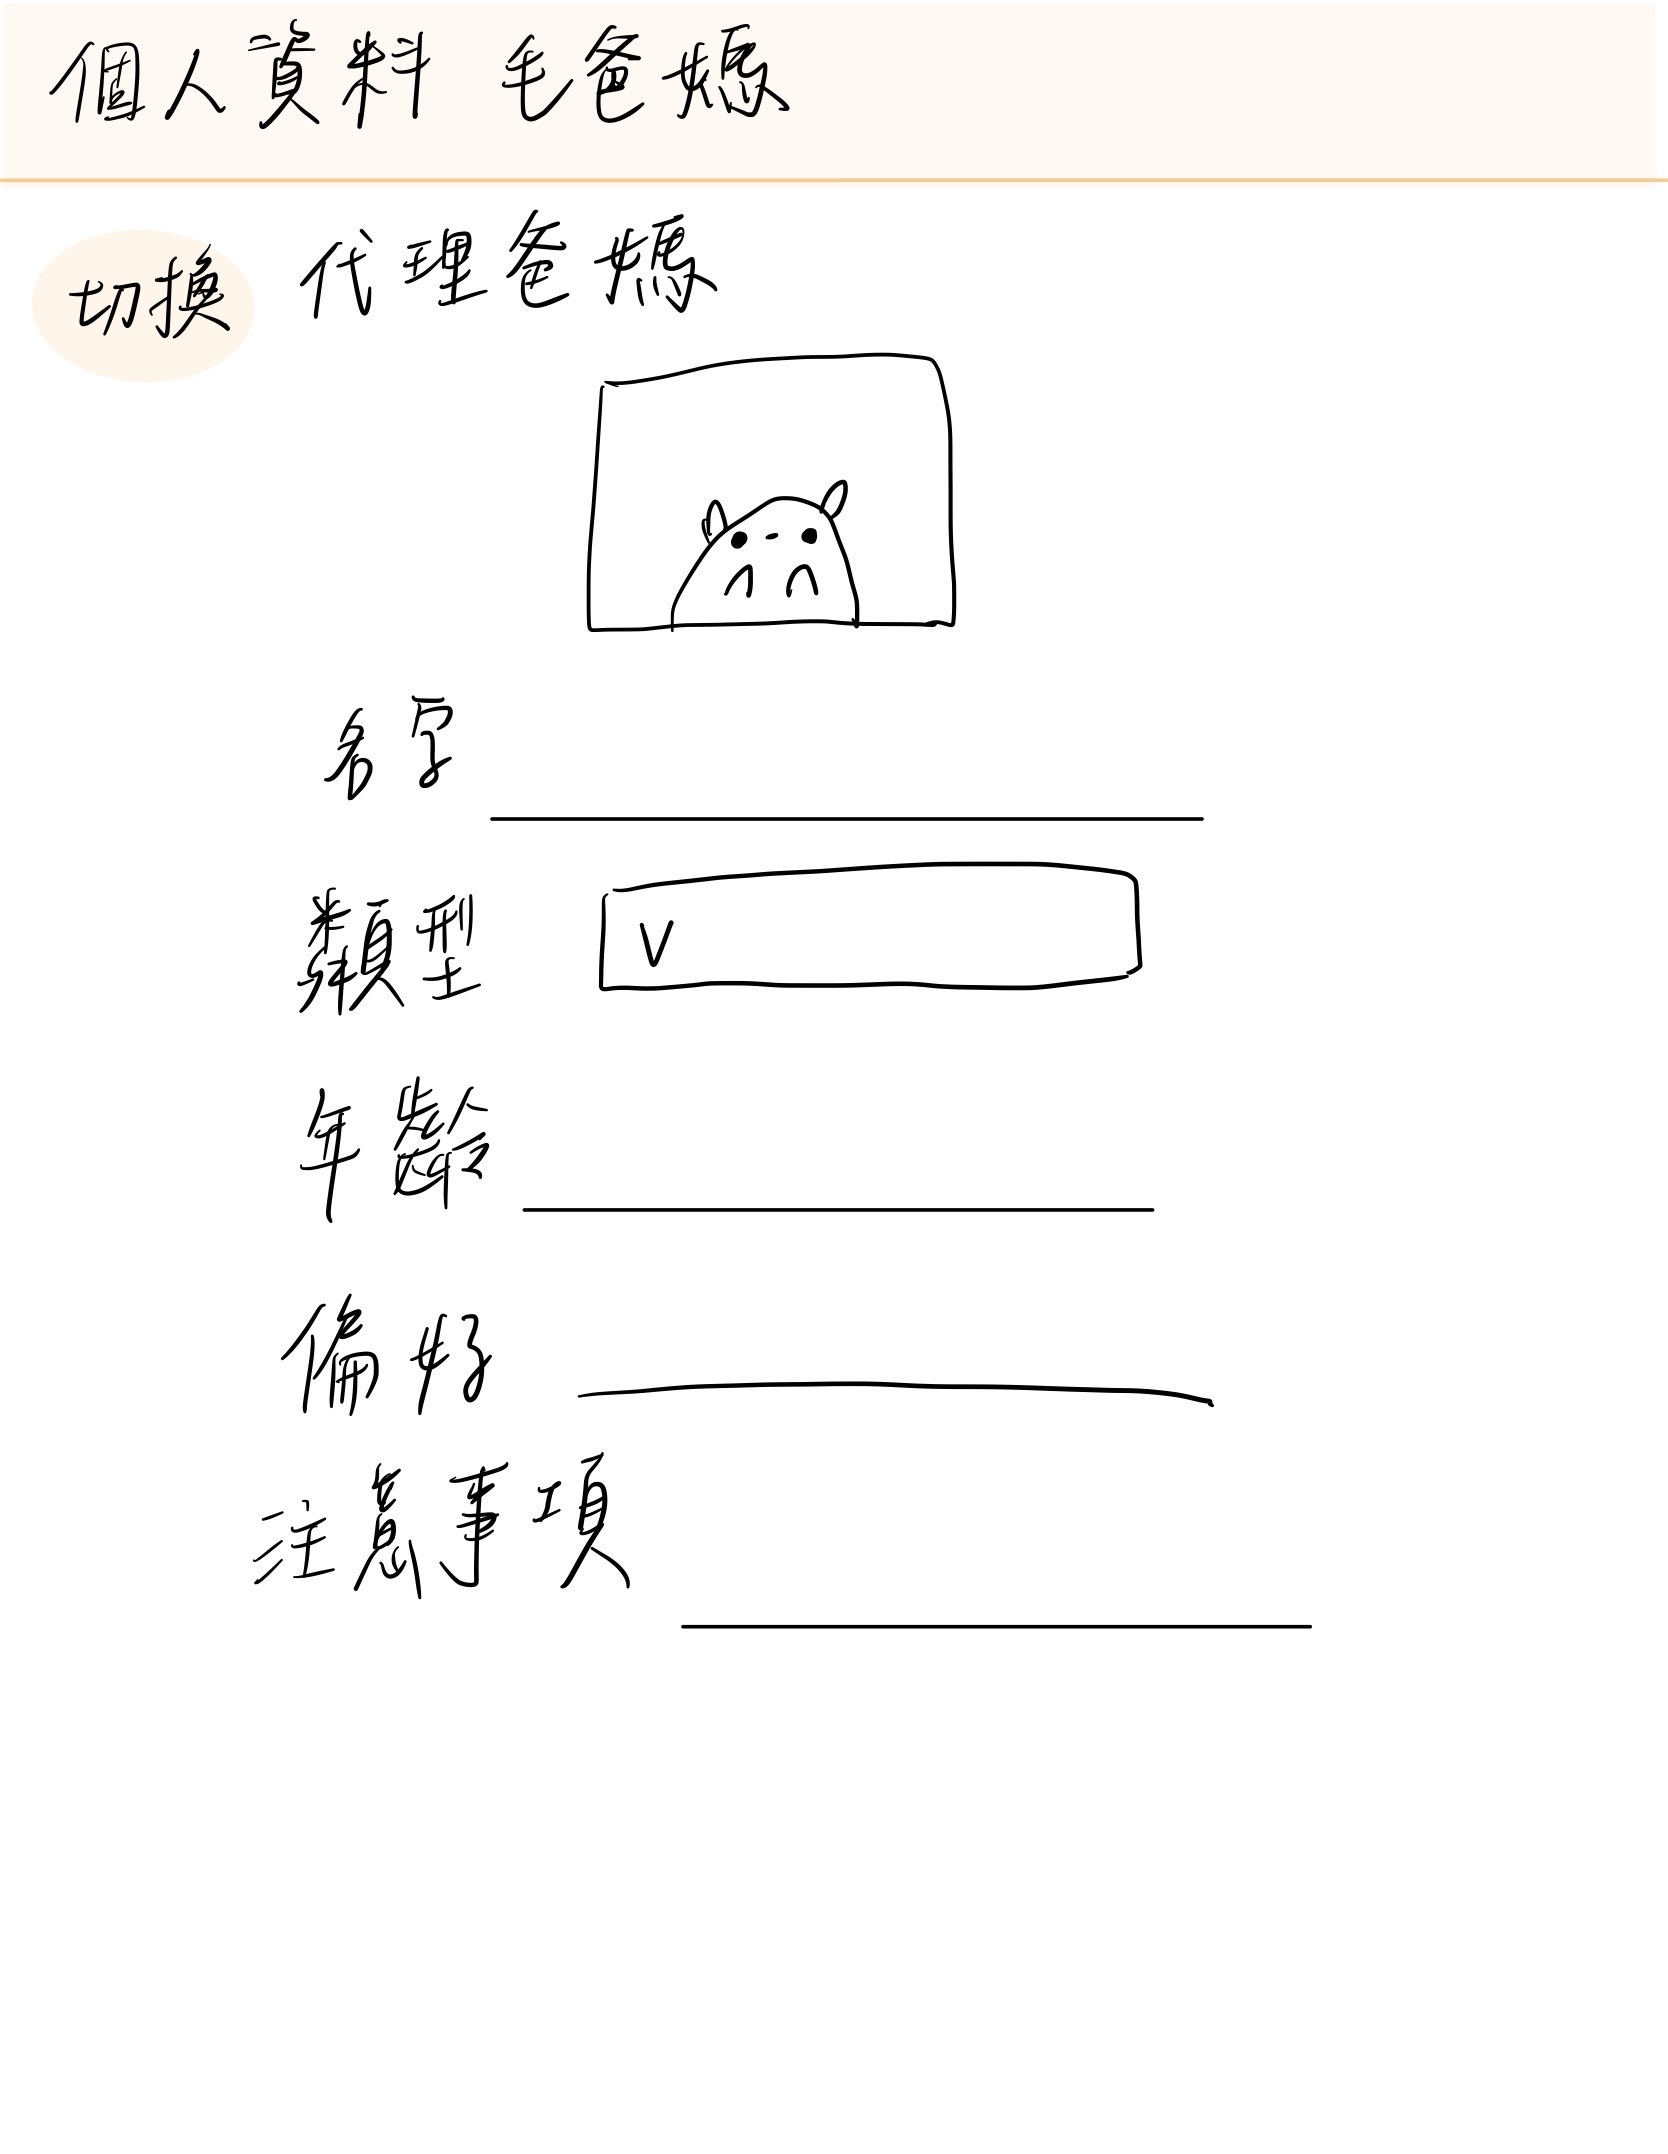 個人資料 毛爸媽
切換 代理爸媽
名字
類型 V
年齡
偏好
注意事項